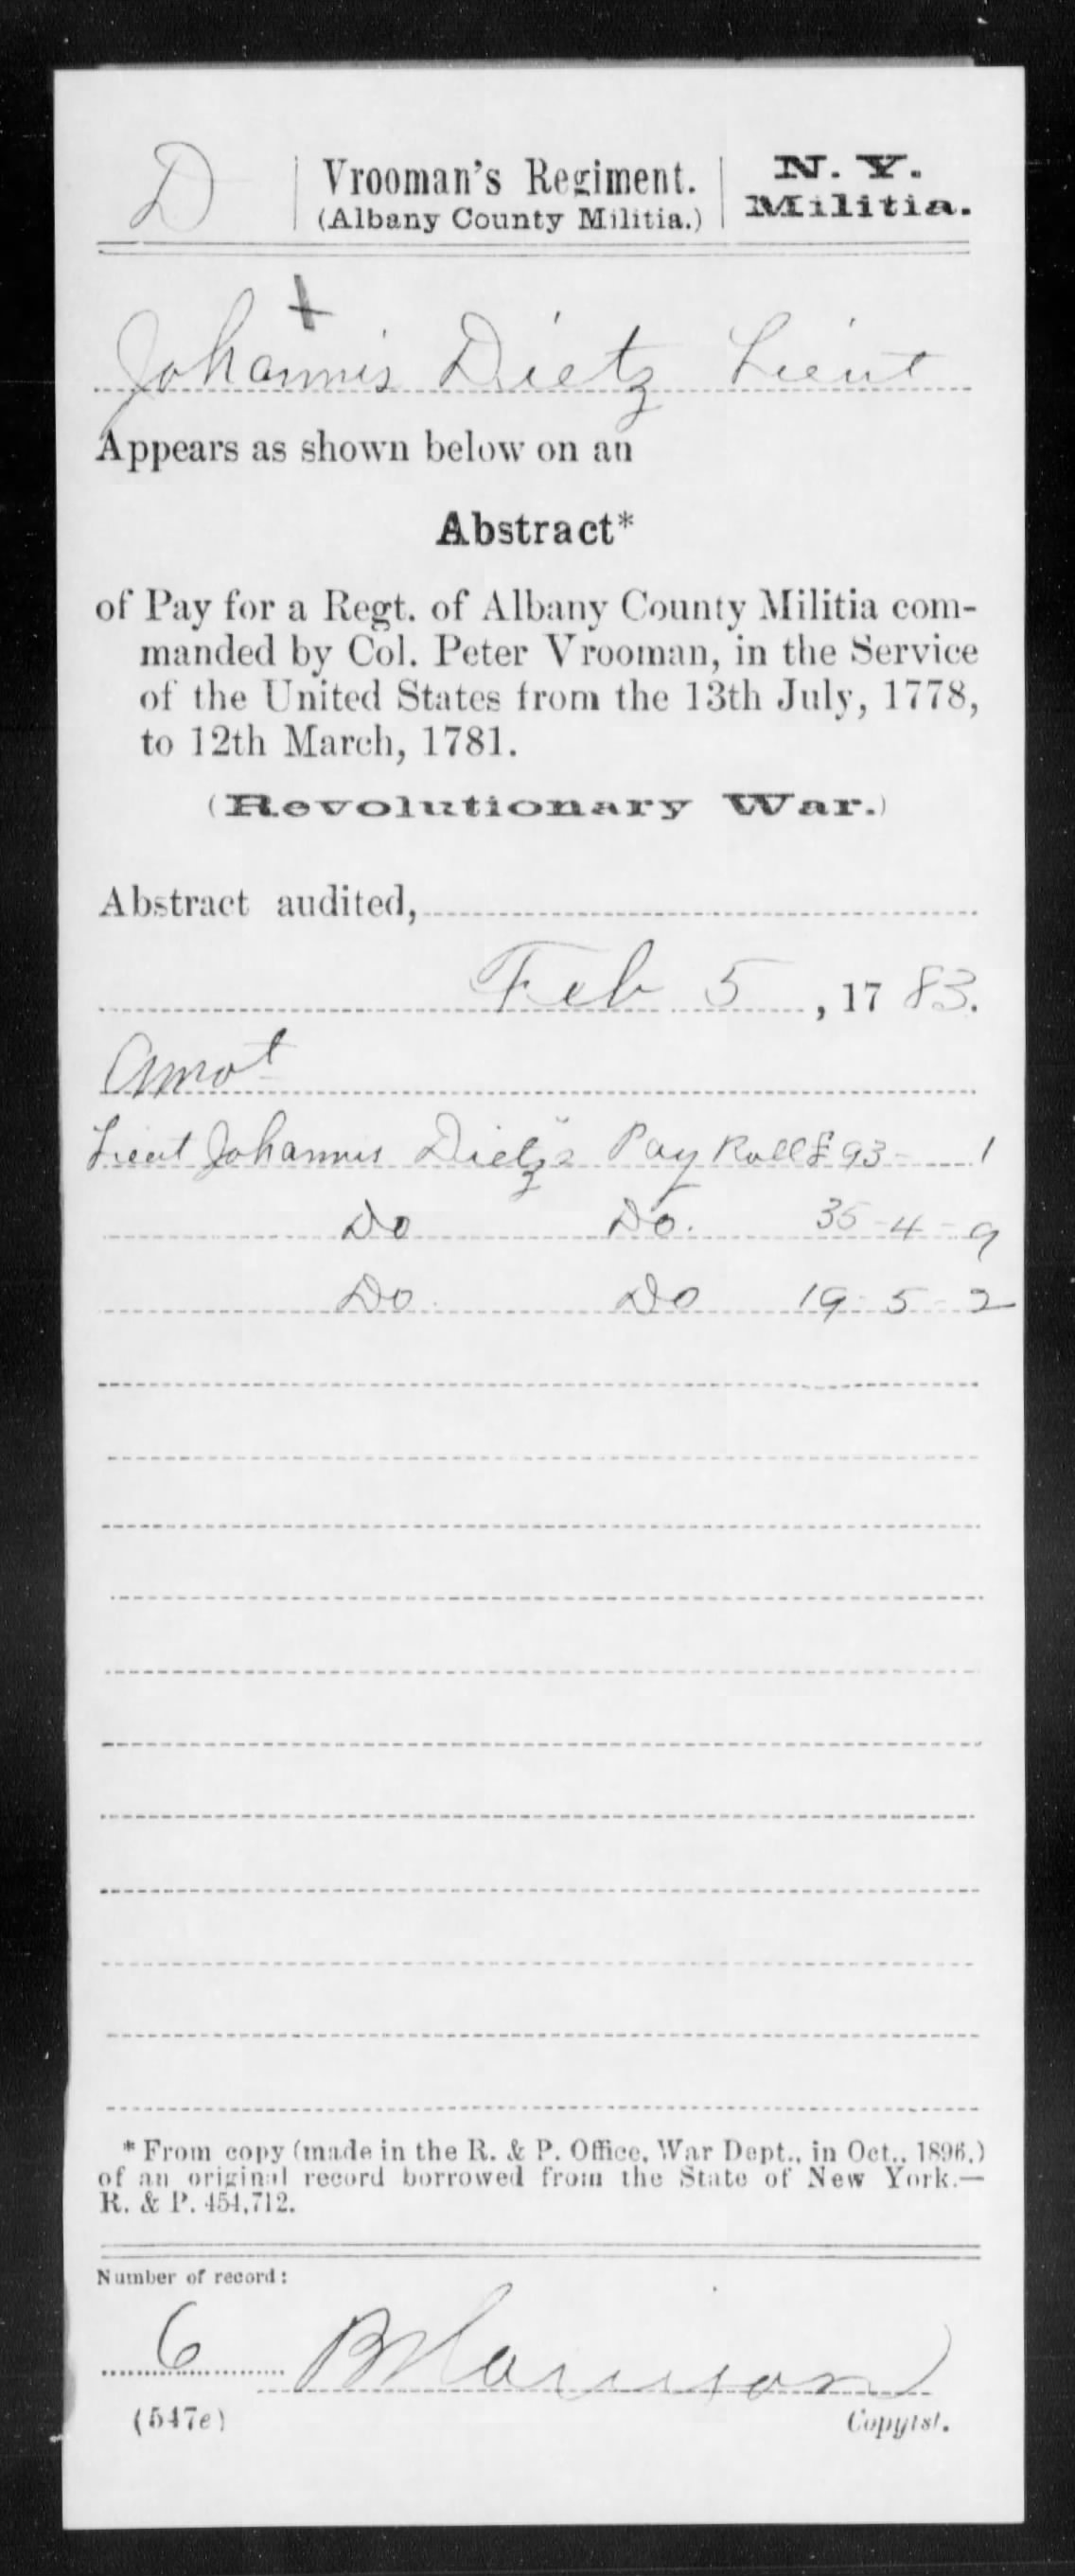 D
Vrooman's Regiment.
(Albany County Militia.)
N. Y.
Militia.
Johannis Dietz Lieut
Appears as shown below on an
Abstract*
of Pay for a Regt. of Albany County Militia com-
manded by Col. Peter Vrooman, in the Service
of the United States from the 13th July, 1778,
to 12th March, 1781.
(Revolutionary War.)
Abstract audited,
Feb 5, 1783.
Amot
Lieut Johannis Dietz's Pay Roll £ 93 - 1
Do Do. 35 - 4 - 9
Do Do 19 - 5 - 2
* From copy (made in the R. & P. Office, War Dept., in Oct., 1896,)
of an original record borrowed from the State of New York.—
R. & P. 454,712.
Number of record:
6
(547e)
Copyist.